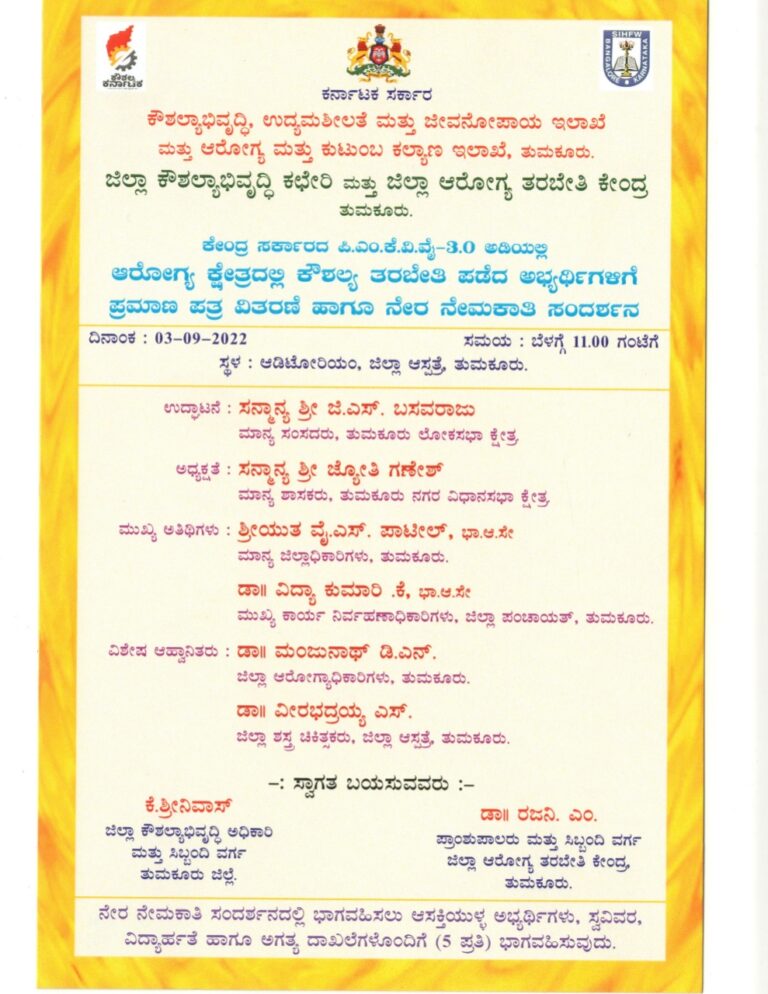 ಕೌಶಲ್ಯ
ಕರ್ನಾಟಕ
SIHFW
BANGALORE KARNATAKA
ಕರ್ನಾಟಕ ಸರ್ಕಾರ
ಕೌಶಲ್ಯಾಭಿವೃದ್ಧಿ, ಉದ್ಯಮಶೀಲತೆ ಮತ್ತು ಜೀವನೋಪಾಯ ಇಲಾಖೆ
ಮತ್ತು ಆರೋಗ್ಯ ಮತ್ತು ಕುಟುಂಬ ಕಲ್ಯಾಣ ಇಲಾಖೆ, ತುಮಕೂರು.
ಜಿಲ್ಲಾ ಕೌಶಲ್ಯಾಭಿವೃದ್ಧಿ ಕಛೇರಿ ಮತ್ತು ಜಿಲ್ಲಾ ಆರೋಗ್ಯ ತರಬೇತಿ ಕೇಂದ್ರ
ತುಮಕೂರು.
ಕೇಂದ್ರ ಸರ್ಕಾರದ ಪಿ.ಎಂ.ಕೆ.ವಿ.ವೈ-3.0 ಅಡಿಯಲ್ಲಿ
ಆರೋಗ್ಯ ಕ್ಷೇತ್ರದಲ್ಲಿ ಕೌಶಲ್ಯ ತರಬೇತಿ ಪಡೆದ ಅಭ್ಯರ್ಥಿಗಳಿಗೆ
ಪ್ರಮಾಣ ಪತ್ರ ವಿತರಣೆ ಹಾಗೂ ನೇರ ನೇಮಕಾತಿ ಸಂದರ್ಶನ
ದಿನಾಂಕ : 03-09-2022 ಸಮಯ : ಬೆಳಗ್ಗೆ 11.00 ಗಂಟೆಗೆ
ಸ್ಥಳ : ಆಡಿಟೋರಿಯಂ, ಜಿಲ್ಲಾ ಆಸ್ಪತ್ರೆ, ತುಮಕೂರು.
ಉದ್ಘಾಟನೆ : ಸನ್ಮಾನ್ಯ ಶ್ರೀ ಜಿ.ಎಸ್. ಬಸವರಾಜು
ಮಾನ್ಯ ಸಂಸದರು, ತುಮಕೂರು ಲೋಕಸಭಾ ಕ್ಷೇತ್ರ
ಅಧ್ಯಕ್ಷತೆ : ಸನ್ಮಾನ್ಯ ಶ್ರೀ ಜ್ಯೋತಿ ಗಣೇಶ್
ಮಾನ್ಯ ಶಾಸಕರು, ತುಮಕೂರು ನಗರ ವಿಧಾನಸಭಾ ಕ್ಷೇತ್ರ
ಮುಖ್ಯ ಅತಿಥಿಗಳು : ಶ್ರೀಯುತ ವೈ.ಎಸ್. ಪಾಟೀಲ್, ಭಾ.ಆ.ಸೇ
ಮಾನ್ಯ ಜಿಲ್ಲಾಧಿಕಾರಿಗಳು, ತುಮಕೂರು.
ಡಾ॥ ವಿದ್ಯಾ ಕುಮಾರಿ .ಕೆ, ಭಾ.ಆ.ಸೇ
ಮುಖ್ಯ ಕಾರ್ಯ ನಿರ್ವಹಣಾಧಿಕಾರಿಗಳು, ಜಿಲ್ಲಾ ಪಂಚಾಯತ್, ತುಮಕೂರು.
ವಿಶೇಷ ಆಹ್ವಾನಿತರು : ಡಾ॥ ಮಂಜುನಾಥ್ ಡಿ.ಎನ್.
ಜಿಲ್ಲಾ ಆರೋಗ್ಯಾಧಿಕಾರಿಗಳು, ತುಮಕೂರು.
ಡಾ॥ ವೀರಭದ್ರಯ್ಯ ಎಸ್.
ಜಿಲ್ಲಾ ಶಸ್ತ್ರ ಚಿಕಿತ್ಸಕರು, ಜಿಲ್ಲಾ ಆಸ್ಪತ್ರೆ, ತುಮಕೂರು.
-: ಸ್ವಾಗತ ಬಯಸುವವರು :-
ಕೆ.ಶ್ರೀನಿವಾಸ್
ಜಿಲ್ಲಾ ಕೌಶಲ್ಯಾಭಿವೃದ್ಧಿ ಅಧಿಕಾರಿ
ಮತ್ತು ಸಿಬ್ಬಂದಿ ವರ್ಗ
ತುಮಕೂರು ಜಿಲ್ಲೆ.
ಡಾ॥ ರಜನಿ. ಎಂ.
ಪ್ರಾಂಶುಪಾಲರು ಮತ್ತು ಸಿಬ್ಬಂದಿ ವರ್ಗ
ಜಿಲ್ಲಾ ಆರೋಗ್ಯ ತರಬೇತಿ ಕೇಂದ್ರ,
ತುಮಕೂರು.
ನೇರ ನೇಮಕಾತಿ ಸಂದರ್ಶನದಲ್ಲಿ ಭಾಗವಹಿಸಲು ಆಸಕ್ತಿಯುಳ್ಳ ಅಭ್ಯರ್ಥಿಗಳು, ಸ್ವವಿವರ,
ವಿದ್ಯಾರ್ಹತೆ ಹಾಗೂ ಅಗತ್ಯ ದಾಖಲೆಗಳೊಂದಿಗೆ (5 ಪ್ರತಿ) ಭಾಗವಹಿಸುವುದು.